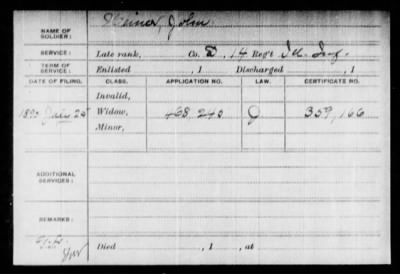 NAME OF SOLDIER: John
SERVICE: Late rank, Co. D, 14 Reg't Ill. Inf.
TERM OF SERVICE: Enlisted , 1 Discharged , 1
DATE OF FILING. CLASS. APPLICATION NO. LAW. CERTIFICATE NO.
Invalid,
July Widow, 468,240 359,166
Minor,
ADDITIONAL SERVICES:
REMARKS:
Died , 1 , at